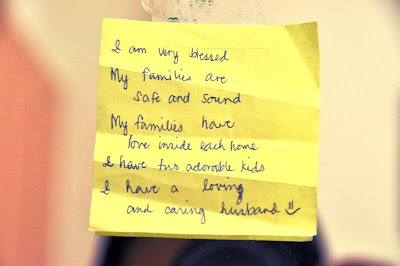 I am very blessed
My families are
safe and sound
My families have
love inside each home
I have two adorable kids
I have a loving
and caring husband